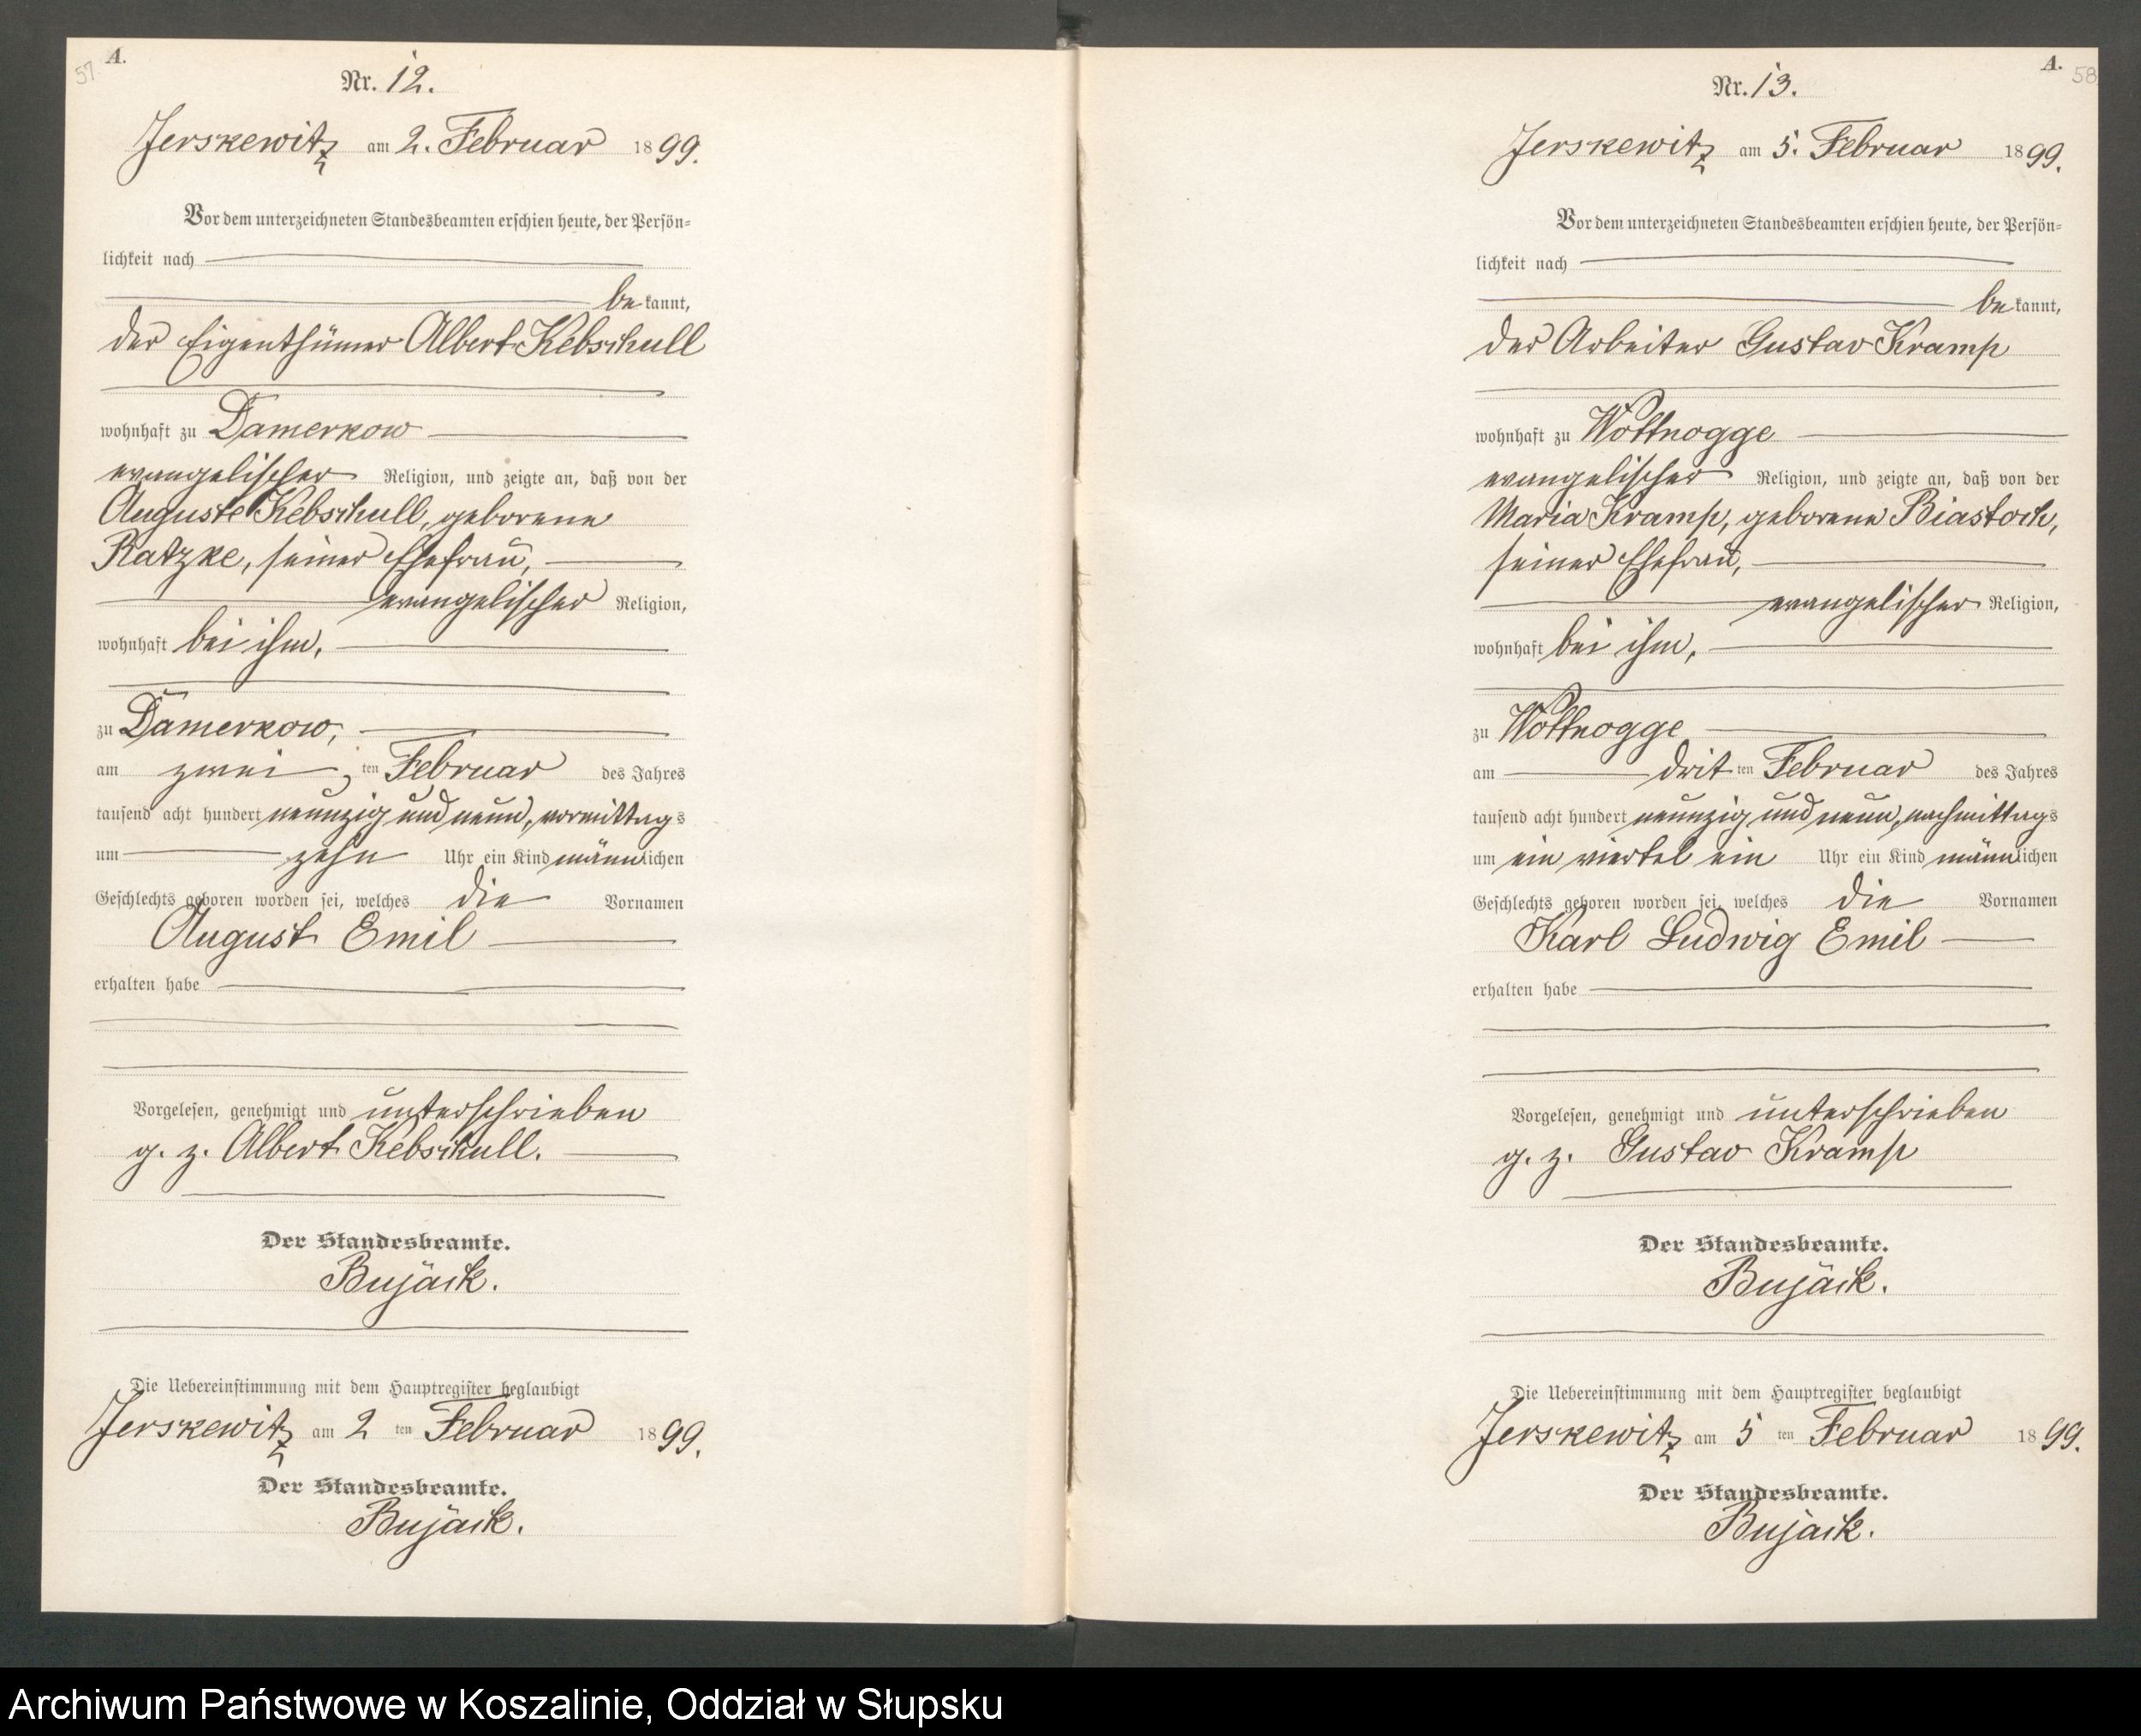 57 A.
Nr. 12.
Jerskewitz am 2. Februar 1899.
Vor dem unterzeichneten Standesbeamten erschien heute, der Persön-
lichkeit nach
bekannt,
der Eigenthümer Albert Kebschull
wohnhaft zu Damerkow
evangelischer Religion, und zeigte an, daß von der
Auguste Kebschull, geborene
Ratzke, seiner Ehefrau,
evangelischer Religion,
wohnhaft bei ihm,
zu Damerkow,
am zwei ten Februar des Jahres
tausend acht hundert neunzig und neun, vormittags
um zehn Uhr ein Kind männlichen
Geschlechts geboren worden sei, welches die Vornamen
August Emil
erhalten habe
Vorgelesen, genehmigt und unterschrieben
g. z. Albert Kebschull.
Der Standesbeamte.
Bujack.
Die Uebereinstimmung mit dem Hauptregister beglaubigt
Jerskewitz am 2 ten Februar 1899.
Der Standesbeamte.
Bujack.
A. 58
Nr. 13.
Jerskewitz am 5. Februar 1899.
Vor dem unterzeichneten Standesbeamten erschien heute, der Persön-
lichkeit nach
bekannt,
der Arbeiter Gustav Kramp
wohnhaft zu Wottnogge
evangelischer Religion, und zeigte an, daß von der
Maria Kramp, geborene Biastock,
seiner Ehefrau,
evangelischer Religion,
wohnhaft bei ihm,
zu Wottnogge
am drit ten Februar des Jahres
tausend acht hundert neunzig und neun, nachmittags
um ein viertel ein Uhr ein Kind männlichen
Geschlechts geboren worden sei, welches die Vornamen
Karl Ludwig Emil
erhalten habe
Vorgelesen, genehmigt und unterschrieben
g. z. Gustav Kramp
Der Standesbeamte.
Bujack.
Die Uebereinstimmung mit dem Hauptregister beglaubigt
Jerskewitz am 5 ten Februar 1899.
Der Standesbeamte.
Bujack.
Archiwum Państwowe w Koszalinie, Oddział w Słupsku